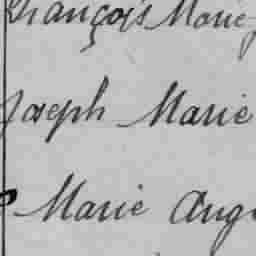 François Marie
Joseph Marie
Marie Ang